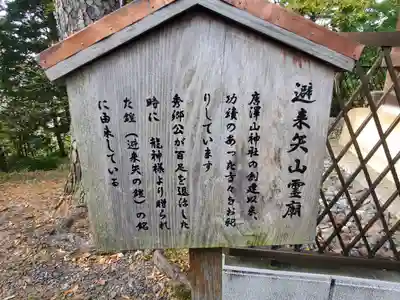 避来矢山霊廟
唐澤山神社の創建以来、
功績のあった方々をお祀
りしています
秀郷公が百足を退治した
時に 龍神様より贈られ
た鎧（避来矢の鎧）の銘
に由来している